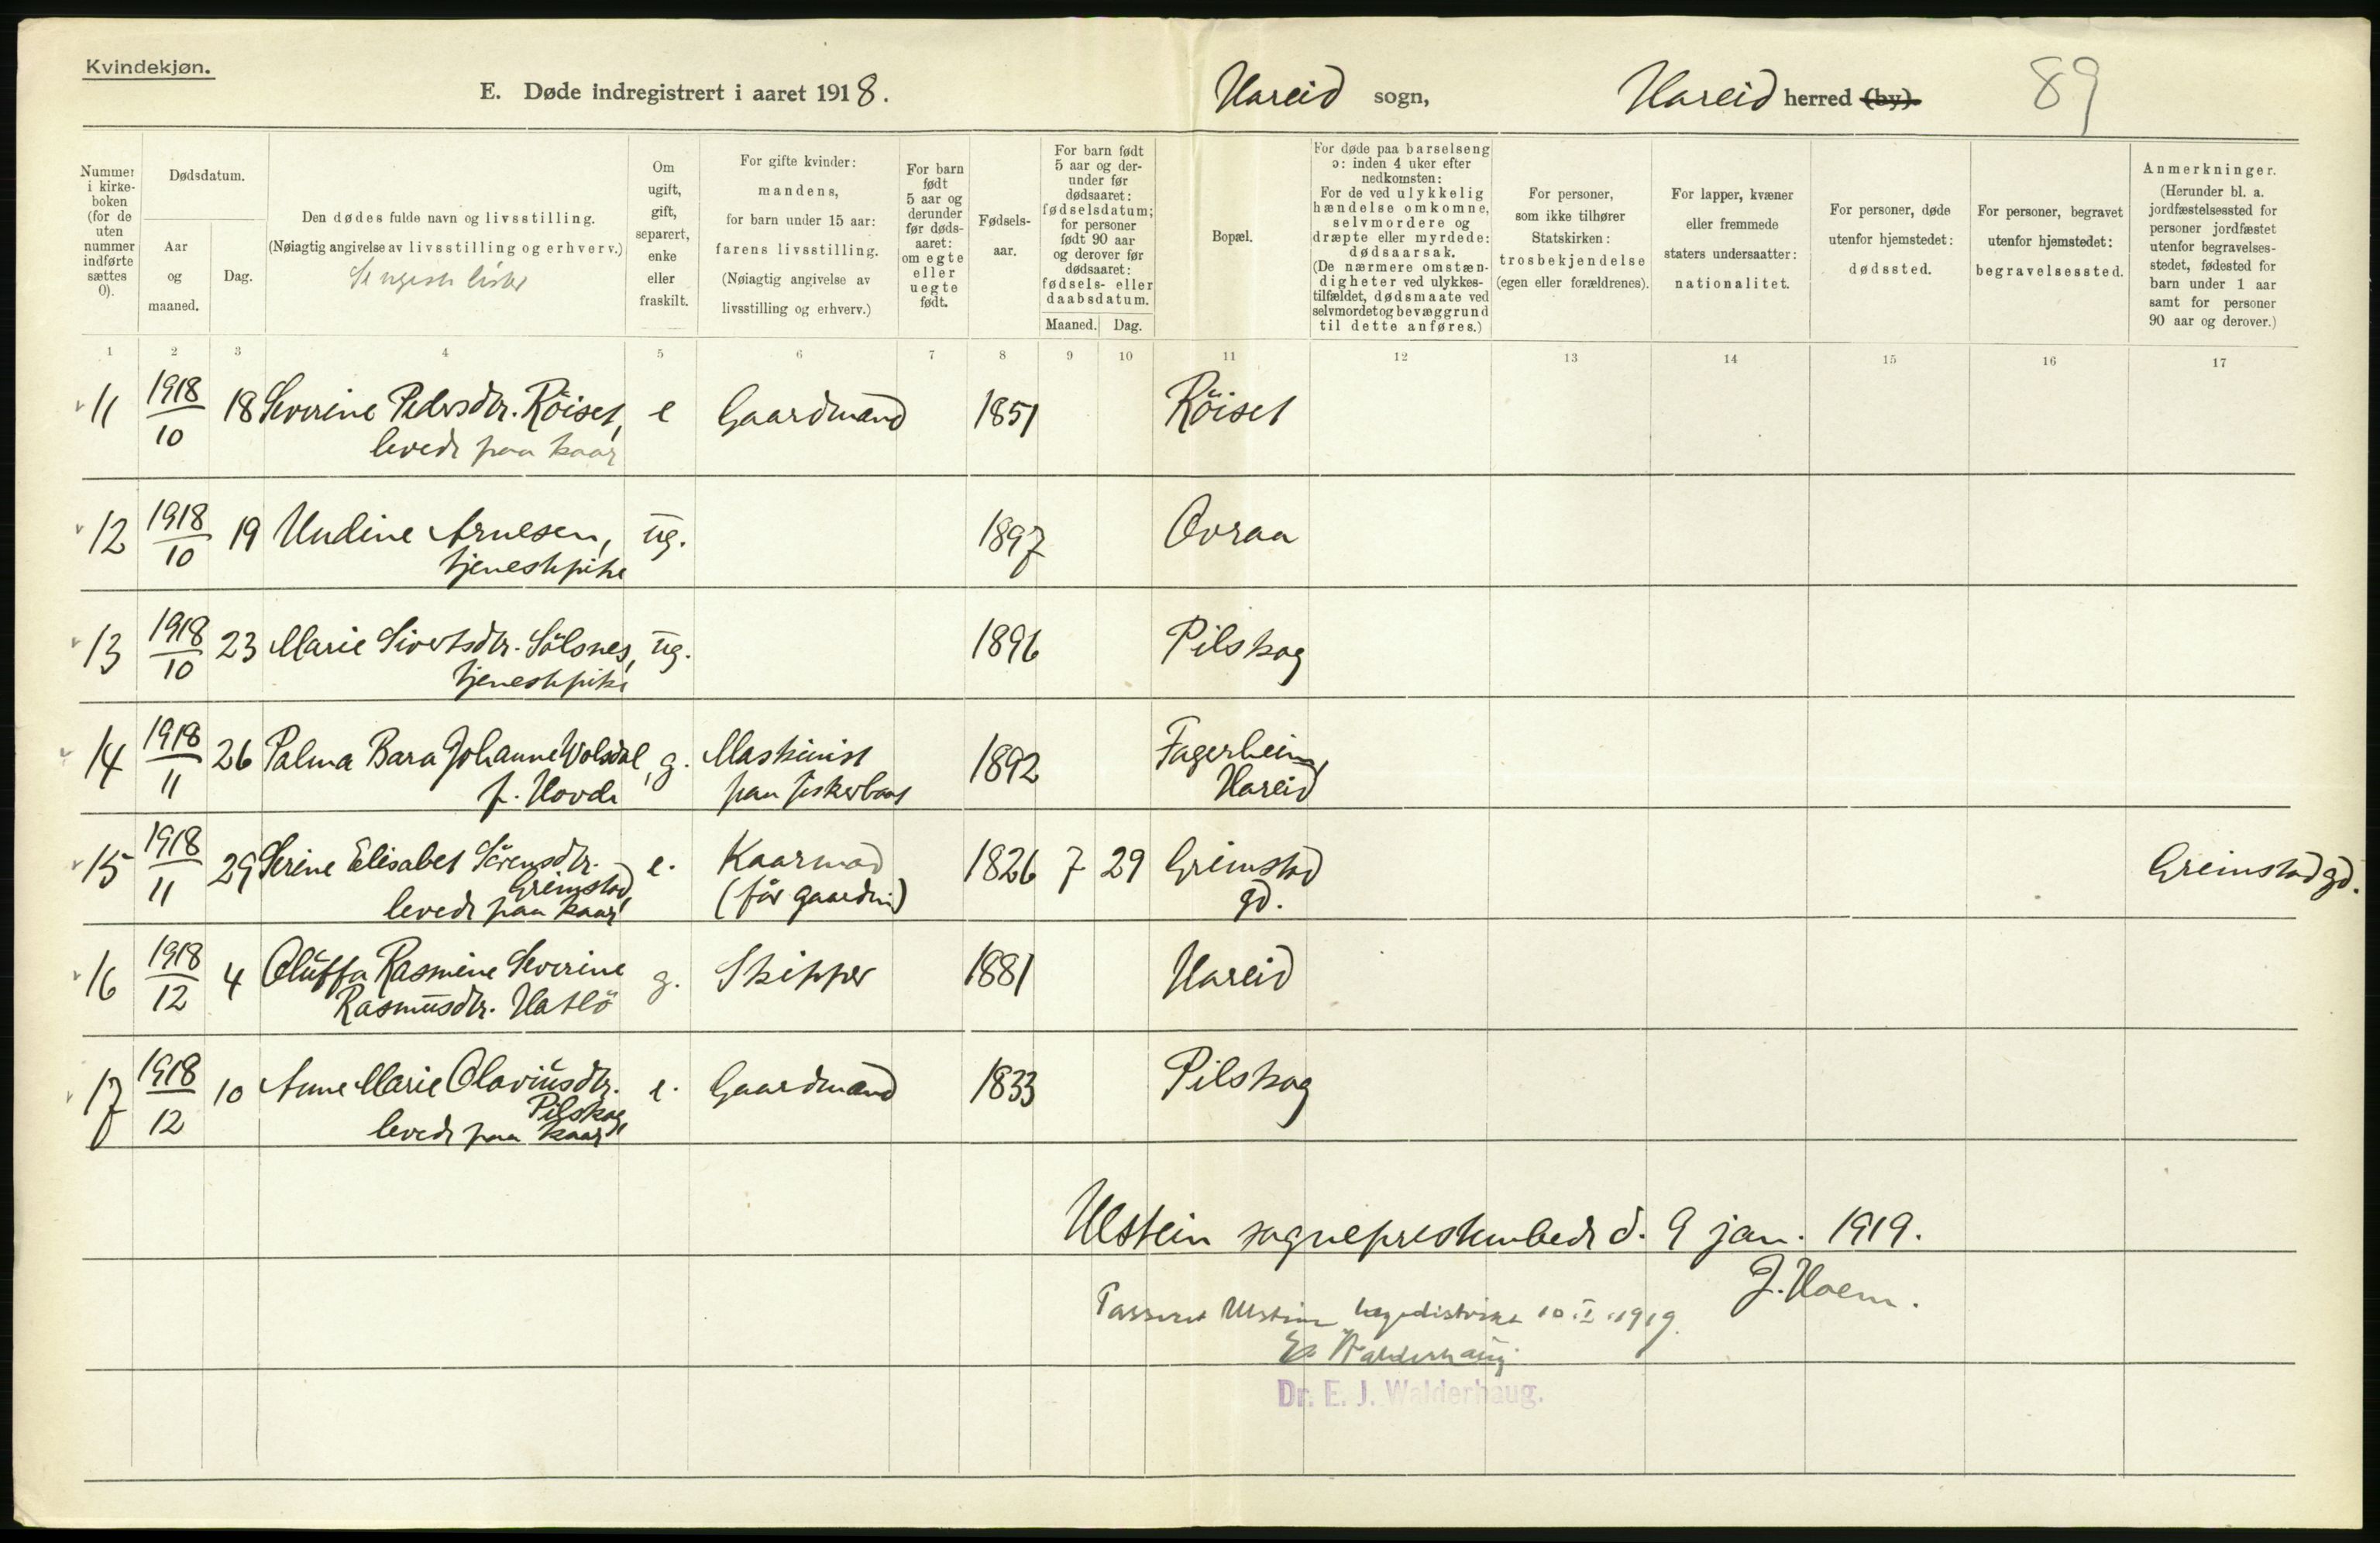 Kvindekjøn.
E. Døde indregistrert i aaret 1918. Hareid sogn, Hareid herred (by). 89
Nummer i kirke-boken (for de uten nummer indførte sættes 0).
Dødsdatum.
Aar og maaned.
Dag.
Den dødes fulde navn og livsstilling.
(Nøiagtig angivelse av livsstilling og erhverv.)
Om ugift, gift, separert, enke eller fraskilt.
For gifte kvinder: mandens, for barn under 15 aar: farens livsstilling. (Nøiagtig angivelse av livsstilling og erhverv.)
For barn født 5 aar og derunder før døds-aaret: om egte eller uegte født.
Fødsels-aar.
For barn født 5 aar og der-under før dødsaaret: fødselsdatum; for personer født 90 aar og derover før dødsaaret: fødsels- eller daabsdatum.
Maaned. Dag.
Bopæl.
For døde paa barselseng ɔ: inden 4 uker efter nedkomsten: For de ved ulykkelig hændelse omkomne, selvmordere og dræpte eller myrdede: dødsaarsak. (De nærmere omstæn-digheter ved ulykkes-tilfældet, dødsmaate ved selvmordet og bevæggrund til dette anføres.)
For personer, som ikke tilhører Statskirken: trosbekjendelse (egen eller forældrenes).
For lapper, kvæner eller fremmede staters undersaatter: nationalitet.
For personer, døde utenfor hjemstedet: dødssted.
For personer, begravet utenfor hjemstedet: begravelsessted.
Anmerkninger. (Herunder bl. a. jordfæstelsessted for personer jordfæstet utenfor begravelses-stedet, fødested for barn under 1 aar samt for personer 90 aar og derover.)
1 2 3 4 5 6 7 8 9 10 11 12 13 14 15 16 17
11 1918/10 18 Severine Pedersdtr. Röiset, e Gaardmand 1851 Röiset
levede paa kaar
12 1918/10 19 Undine Arnesen, ug. 1897 Ovraa
tjenestepike
13 1918/10 23 Marie Sivertsdtr. Sölsnes, ug. 1896 Pilskog
tjenestepike
14 1918/11 26 Palma Bara Johanne Wolsdal, g. Maskinist 1892 Fagerheim,
f. Hovde paa fiskerbaat Hareid
15 1918/11 29 Serine Elisabet Sörensdtr. e. Kaarmand 1826 7 29 Grimstad Greimstad gd.
Greimstad, (för gaardm) gd.
levede paa kaar
16 1918/12 4 Oluffa Rasmine Severine g. Skipper 1881 Hareid
Rasmusdtr. Hatlö
17 1918/12 10 Anne Marie Olaviusdtr. e. Gaardmand 1833 Pilskog
Pilskog,
levede paa kaar
Ulstein sogneprestembede d. 9 jan. 1919.
J. Hoem.
Passeret Ulstein lægedistrikt 10.I.1919.
E. Walderhaug
Dr. E. J. Walderhaug.